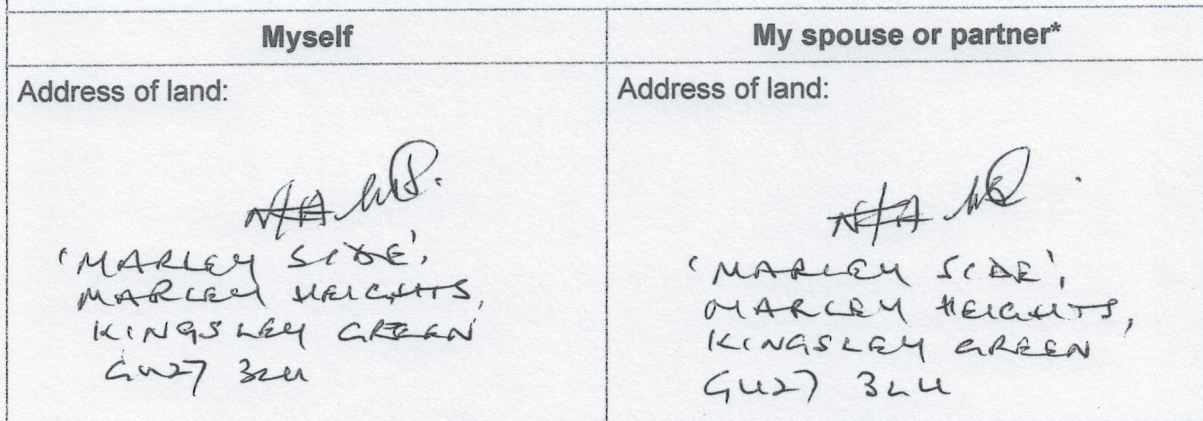 Myself
My spouse or partner*
Address of land:
N/A
'MARLEY SIDE',
MARLEY HEIGHTS,
KINGSLEY GREEN
GU27 3LU
Address of land:
N/A
'MARLEY SIDE',
MARLEY HEIGHTS,
KINGSLEY GREEN
GU27 3LU